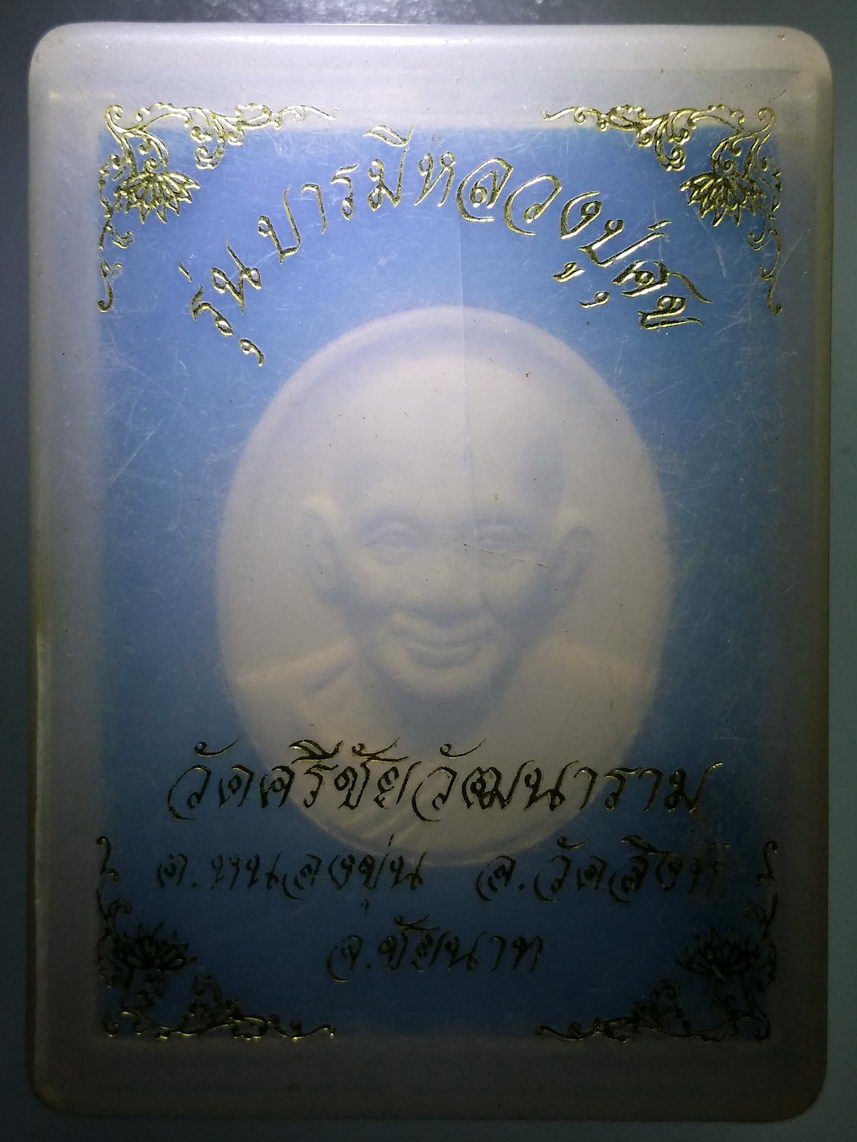 รุ่นบารมีหลวงปู่ศุข
วัดศรีชัยวัฒนาราม
ต.หนองขุ่น อ.วัดสิงห์
จ.ชัยนาท